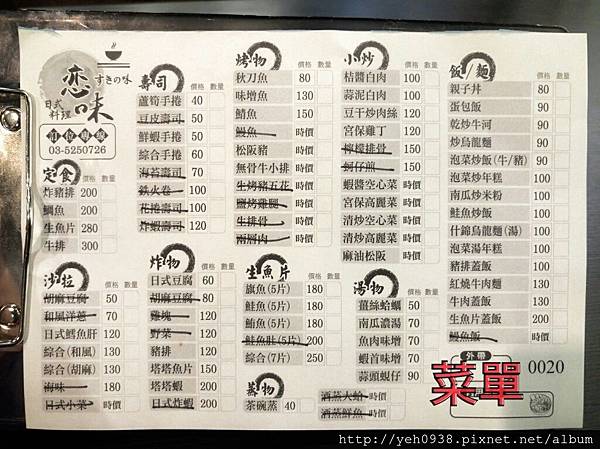 戀味
すきの味
日式
料理
訂位專線
03-5250726
定食
炸豬排 200
鯛魚 200
生魚片 280
牛排 300
壽司 價格 數量
蘆筍手捲 40
豆皮壽司 50
鮮蝦手捲 50
綜合手捲 60
海苔壽司 50
鐵火卷 100
花捲壽司 100
炸蝦壽司 120
烤物 價格 數量
秋刀魚 80
味增魚 130
鯖魚 150
鰻魚 時價
松阪豬 時價
無骨牛小排 時價
生烤豬五花 時價
鹽烤雞腿 時價
牛排骨 時價
小炒 價格 數量
桔醬白肉 100
蒜泥白肉 100
豆干炒肉絲 100
宮保雞丁 100
檸檬排骨 時價
蚵仔煎 時價
蝦醬空心菜 時價
宮保高麗菜 時價
清炒空心菜 時價
清炒高麗菜 時價
麻油松阪 時價
飯/麵 價格 數量
親子丼 80
蛋包飯 90
乾炒牛河 90
炒烏龍麵 90
泡菜炒飯(牛/豬) 90
泡菜炒年糕 100
南瓜炒米粉 100
鮭魚炒飯 100
什錦烏龍麵(湯) 100
泡菜湯年糕 100
豬排蓋飯 100
紅燒牛肉麵 130
牛肉蓋飯 130
生魚片蓋飯 200
鰻魚飯 時價
沙拉 價格 數量
胡麻豆腐 50
和風洋蔥 70
日式鱈魚肝 120
綜合(和風) 130
綜合(胡麻) 130
海味 180
日式小菜 時價
炸物 價格 數量
日式豆腐 60
雞塊 120
野菜 120
豬排 120
塔塔魚片 150
塔塔蝦 200
日式炸蝦 200
生魚片 價格 數量
旗魚(5片) 180
鮭魚(5片) 180
鮪魚(5片) 180
鮭魚肚(5片) 200
綜合(7片) 250
蒸物
茶碗蒸 40
湯物 價格 數量
薑絲蛤蠣 50
南瓜濃湯 70
魚肉味增 70
蝦首味增 70
蒜頭蜆仔 90
酒蒸大蛤 時價
酒蒸鮮魚 時價
外帶
0020
菜單
http://yeh0938.pixnet.net/album